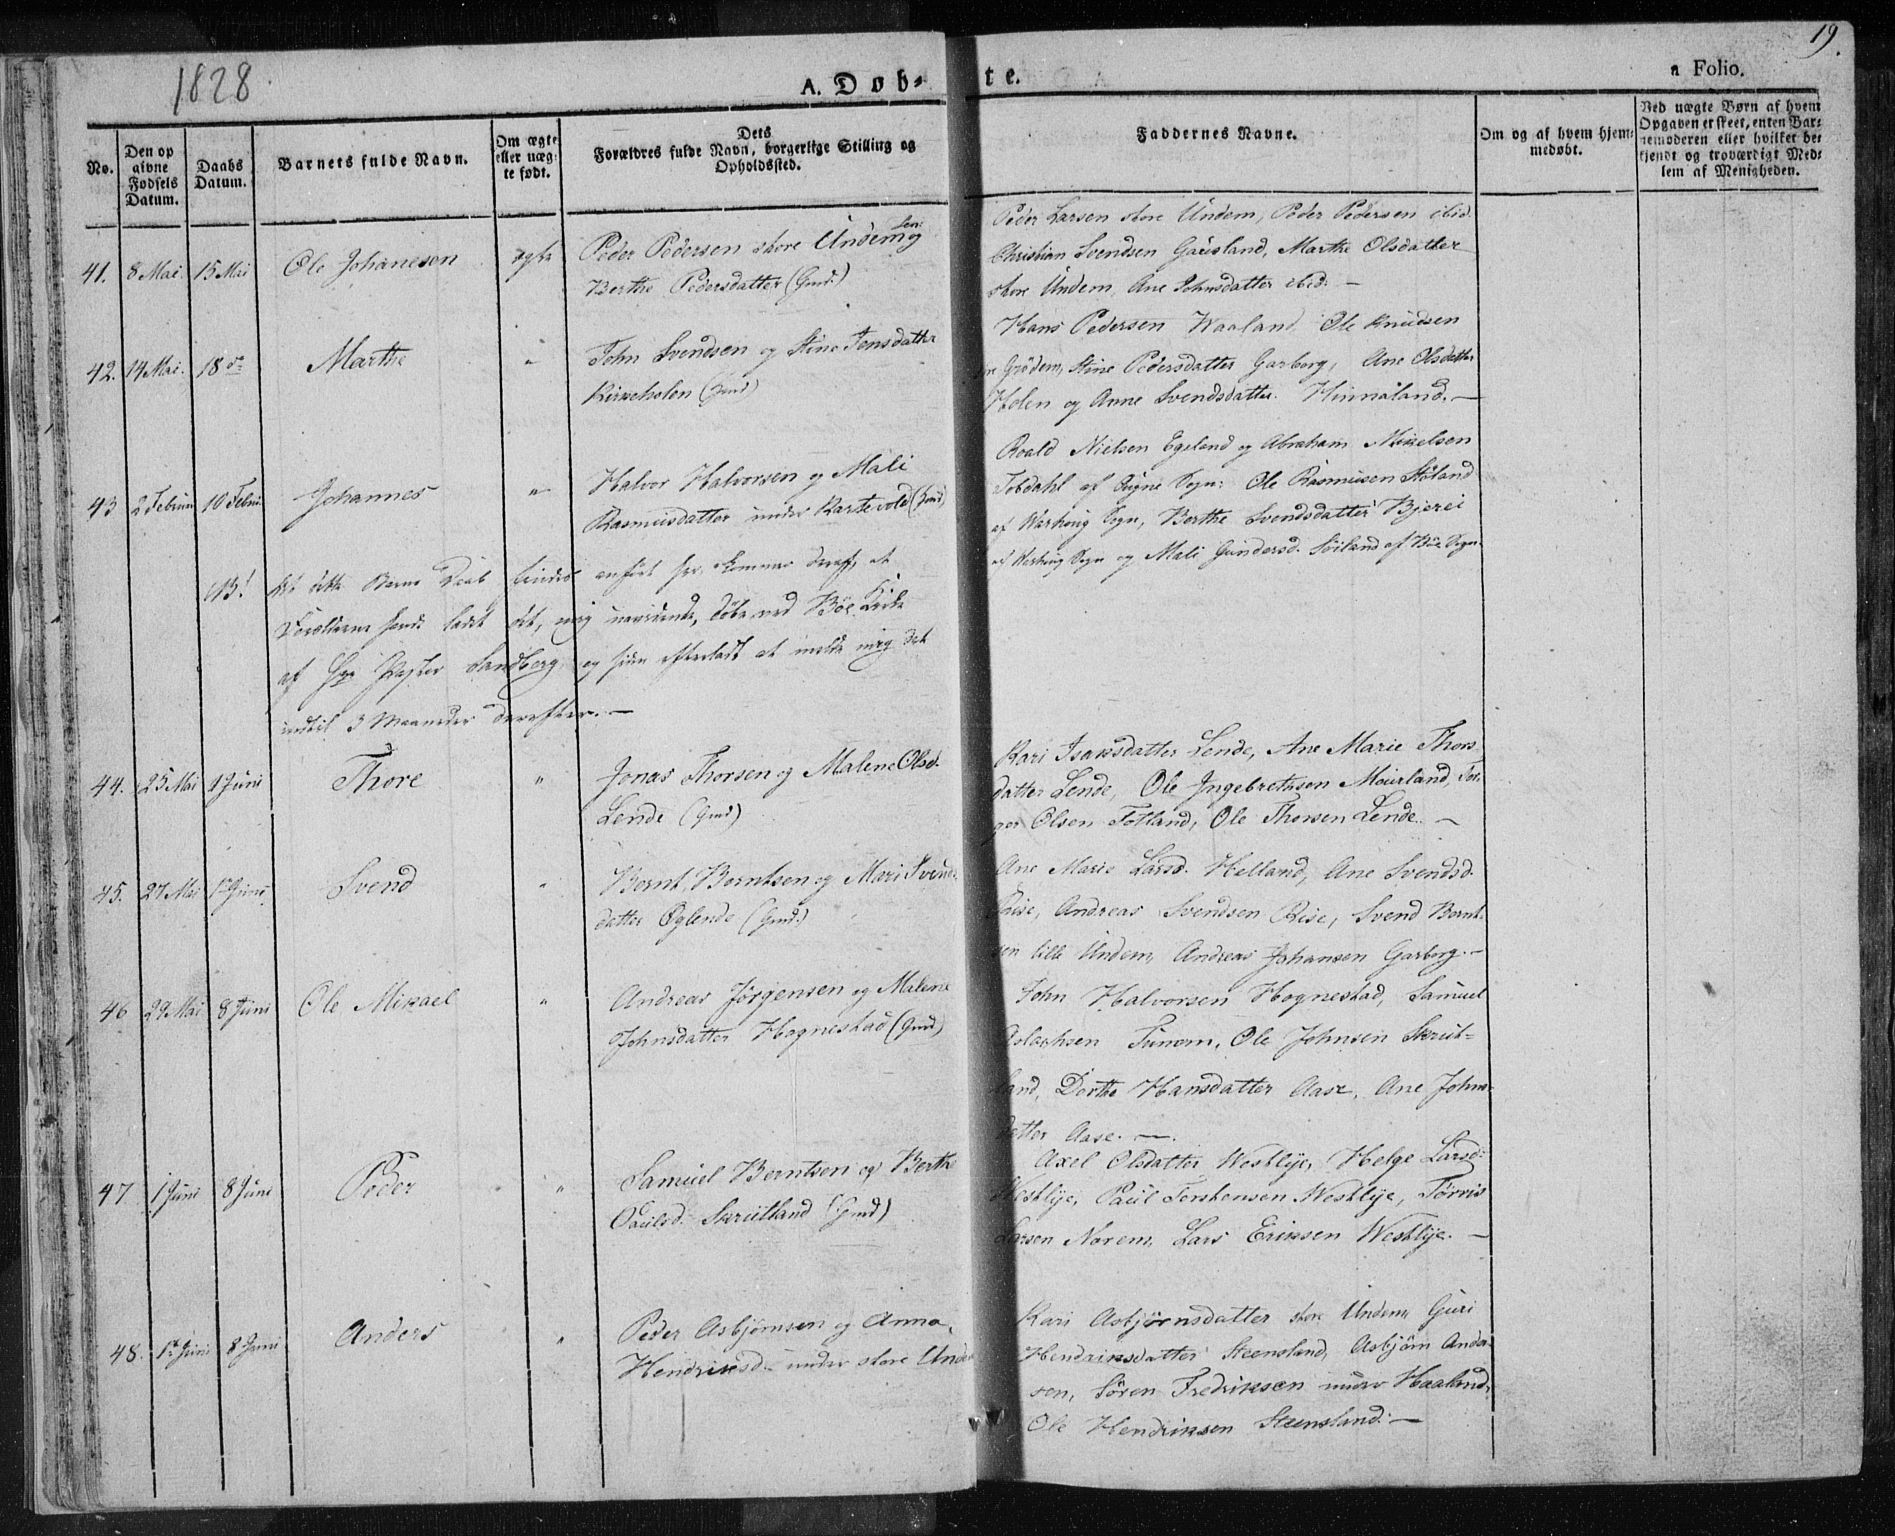 1828
A. Døbte.
19.
a Folio.
No.
Den opgivne Fødsels Datum.
Daabs Datum.
Barnets fulde Navn.
Om ægte eller uægte født.
Dets Forældres fulde Navn, borgerlige Stilling og Opholdssted.
Faddernes Navne.
Om og af hvem hjemmedøbt.
Ved uægte Børn af hvem Opgaven er skeet, enten Barnemoderen eller hvilket bekjendt og troværdigt Medlem af Menigheden.
41. 8 Mai 15 Mai Ole Johanesen ægte Peder Pedersen store Undem og
Berthe Pedersdatter (Gmd.)
Peder Larsen store Undem, Peder Pedersen ibid.
Christian Svendsen Gausland, Marthe Olsdatter
store Undem, Ane Johnsdatter ibid. —
42. 14 Mai. 18 do Marthe " John Svendsen og Stine Jensdatter
Kirkeholen (Gmd)
Hans Pedersen Waaland, Ole Knudsen
Grødem, Stine Pedersdatter Garborg, Ane Olsdatter
Holen og Anne Svendsdatter Hinnaland. —
43 2 Februar 10 Februar Johannes " Halvor Halvorsen og Mali
Rasmusdatter under Kartevold (Gmd)
Roald Nielsen Egeland og Abraham Mikelsen
Tobdahl af Ougne Sogn: Ole Rasmussen Støland
af Warhoug Sogn, Berthe Svendsdatter Bjerei
af Warhoug Sogn og Mali Gundersd. Søiland af Böe Sogn.
NB! At dette Barns Daab findes anført her, kommer deraf, at
Forældrene havde ladet det, mig uvidende, døbe ved Böe Kirke
af Hr Pastor Sandberg, og siden efterladt at melde mig det
indtil 3 Maaneder derefter. —
44. 25 Mai 1 Juni Thore " Jonas Thorsen og Malene Olsd.
Lende (Gmd)
Kari Isaksdatter Lende, Ane Marie Thorsdatter
Lende, Ole Ingebretsen Mauland, Torger
Olsen Totland, Ole Thorsen Lende. —
45. 27 Mai 1 Juni. Svend " Bernt Berntsen og Mari Svendsdatter
Øglende (Gmd.)
Ane Marie Larsd. Helland, Ane Svendsd.
Riise, Andreas Svendsen Riise, Svend Berntsen
lille Undem, Andreas Johansen Garborg. —
46 29 Mai 8 Juni Ole Mikael " Andreas Jørgensen og Malene
Johnsdatter Hognestad (Gmd)
John Halvorsen Hognestad, Samuel
Aslachsen Tunem, Ole Johnsen Skrutland,
Dorthe Hansdatter Aase, Ane Johnsdatter
Aase. —
47 1 Juni 8 Juni Peder " Samuel Berntsen og Berthe
Paulsd. Skrutland (Gmd)
Axel Olsdatter Westlye, Helge Larsd:
Westlye, Paul Torstensen Westlye, Tørris
Larsen Norem, Lars Eriksen Westlye. —
48. 1 Juni 8 Juni Anders " Peder Asbjørnsen og Anna
Hendriksd. under store Undem
Kari Asbjørnsdatter store Undem, Guri
Hendriksdatter Steensland, Asbjørn Andersen,
Søren Fredriksen under Haaland,
Ole Hendriksen Steensland. —